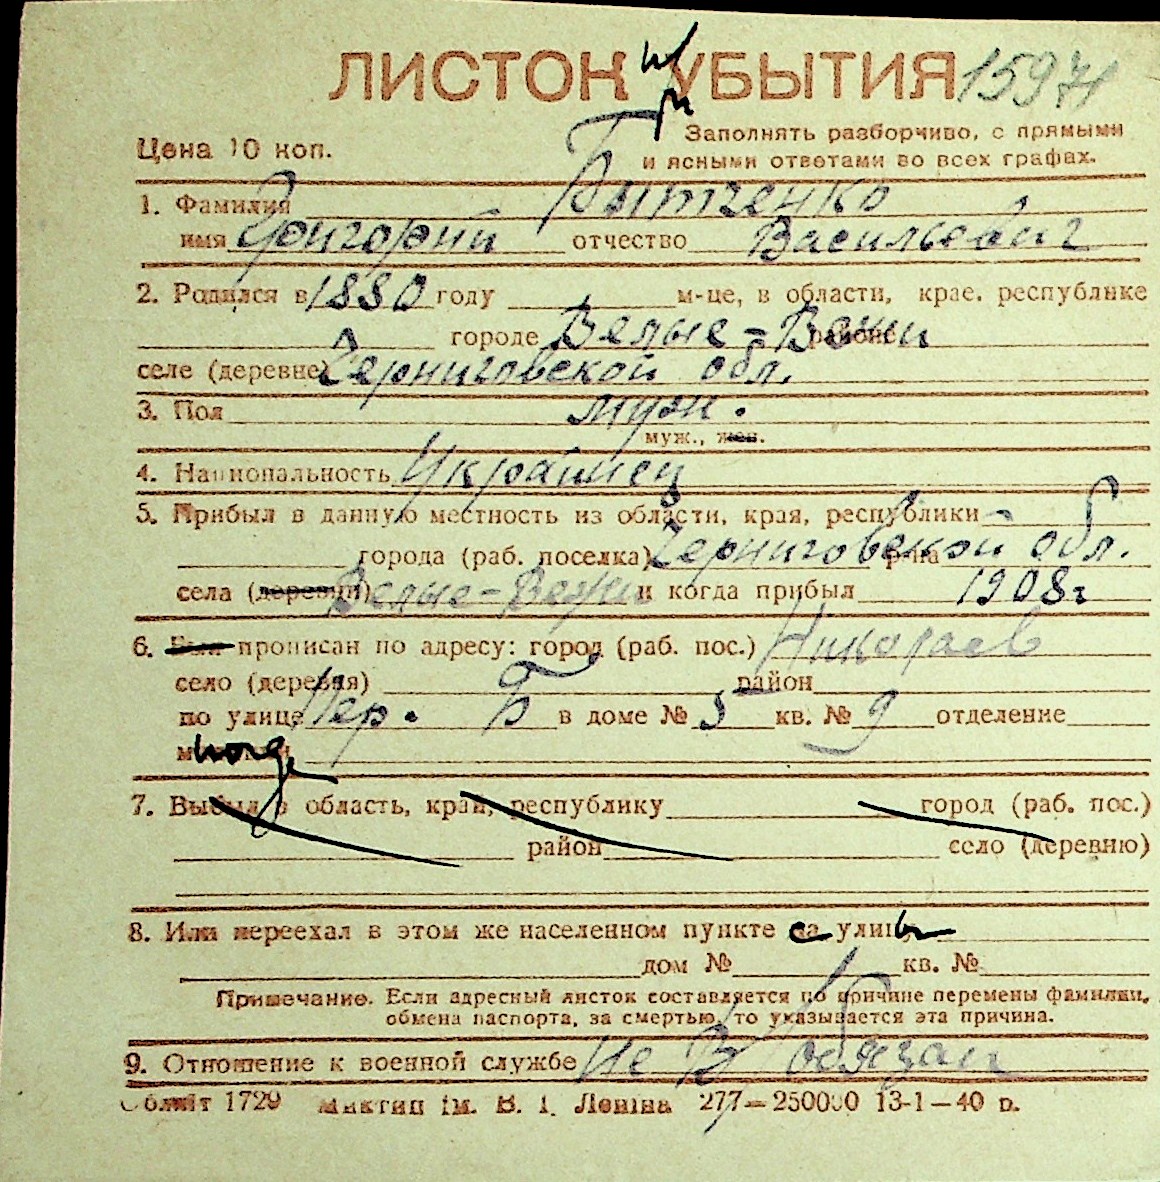 ЛИСТОК УБЫТИЯ 15971
Цена 10 коп.
Заполнять разборчиво, с прямыми
и ясными ответами во всех графах.
1. Фамилия Бытченко
имя Григорий отчество Васильевич
2. Родился в 1880 году м-це, в области, крае, республике
городе Велые-Вежи районе
селе (деревне) Черниговской обл.
3. Пол муж.
муж., жен.
4. Национальность Украинец
5. Прибыл в данную местность из области, края, республики
города (раб. поселка) Черниговской обл. р-на
села (деревни) Велые-Вежи и когда прибыл 1908 г
6. Был прописан по адресу: город (раб. пос.) Николаев
село (деревня) район
по улице Пер. Б в доме № 5 кв. № 9 отделение
милиции
7. Выбыл в область, край, республику город (раб. пос.)
район село (деревню)
8. Или переехал в этом же населенном пункте с улицы
дом № кв. №
Примечание. Если адресный листок составляется по причине перемены фамилии,
обмена паспорта, за смертью, то указывается эта причина.
9. Отношение к военной службе Не В/обязан
Облліт 1729 ім. В. І. Леніна 277—250000 13-1—40 р.